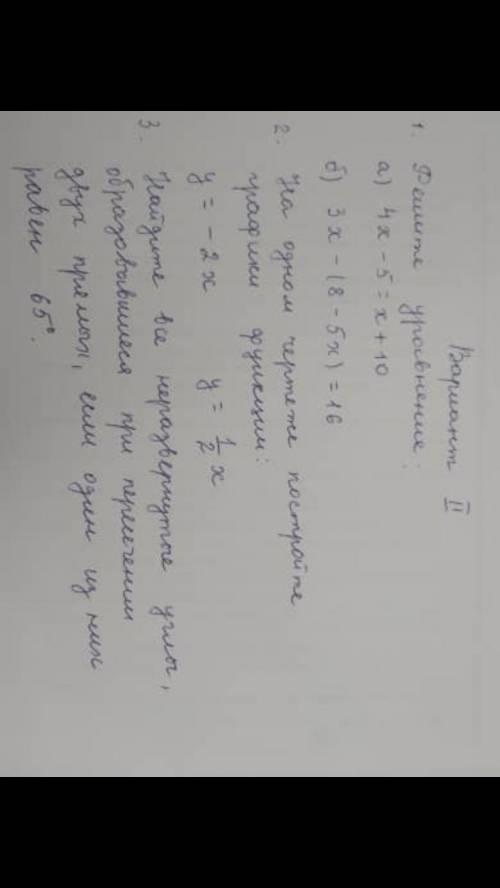 Вариант II
1. Решите уравнение:
а) 4x - 5 = x + 10
б) 3x - (8 - 5x) = 16
2. На одном чертеже постройте
графики функции:
y = - 2x y = 1/2 x
3. Найдите все неразвернутые углы,
образовывшиеся при пересечении
двух прямых, если один из них
равен 65°.